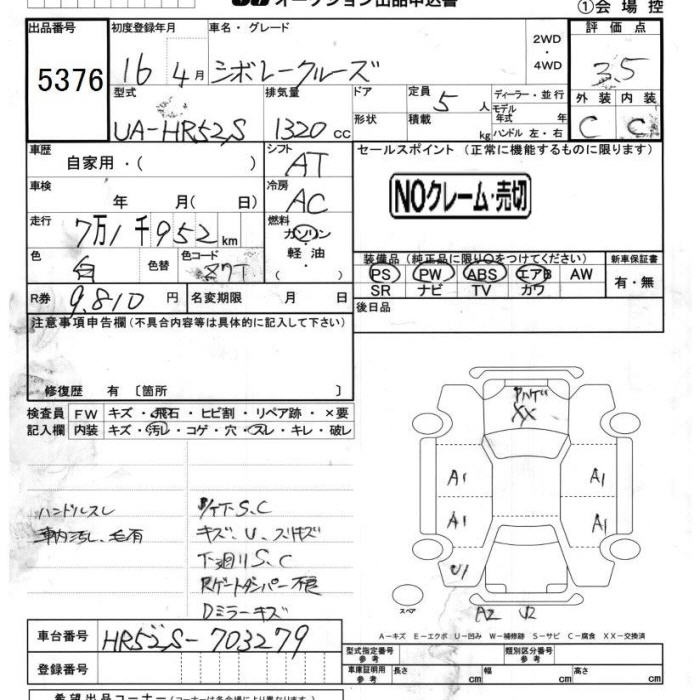 オークション出品申込書
①会場控
出品番号 初度登録年月 車名・グレード 2WD・4WD 評価点
5376 16 4月 シボレークルーズ 3.5
型式 排気量 ドア 定員 ディーラー・並行 外装 内装
UA-HR52S 1320cc 形状 積載 5人 kg モデル年式 年 ハンドル 左・右 C C
車歴 自家用・( ) シフト AT セールスポイント (正常に機能するものに限ります)
車検 年 月( 日) 冷房 AC NOクレーム・売切
走行 7万1千952km 燃料 ガソリン・軽油
色 白 色替 色コード 装備品(純正品に限り○をつけてください) 新車保証書
PS PW ABS エアB AW 有・無
SR ナビ TV カワ
R券 9,810円 名変期限 月 日 後日品
注意事項申告欄(不具合内容等は具体的に記入して下さい)
修復歴 有 〔箇所 〕
検査員 FW キズ・飛石・ヒビ割・リペア跡・×要
記入欄 内装 キズ・汚レ・コゲ・穴・スレ・キレ・破レ
ハンドルスレ
車内汚レ、毛有
S.C
キズ、U、スリキズ
下廻りS、C
Rゲートダンパー不良
Dミラーキズ
XX
A1 A1
A1 A1
U1
スペア
A2 U2
A−キズ E−エクボ U−凹み W−補修跡 S−サビ C−腐食 XX−交換済
車台番号 HR52S-703279 型式指定番号 参考 類別区分番号 参考
登録番号 車庫証明用 参考 長さ cm 幅 cm 高さ cm
希望出品コーナー(コーナーは各会場により異なります)